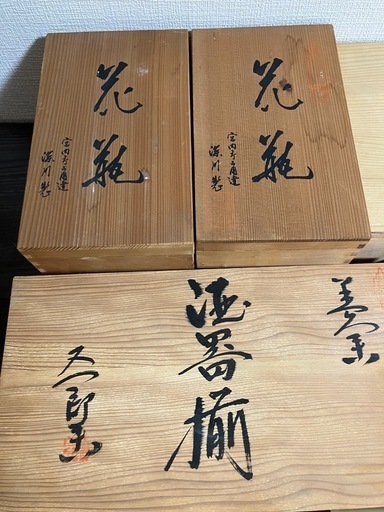 花瓶
宮内庁御用達
深川製
花瓶
宮内庁御用達
深川製
酒器揃